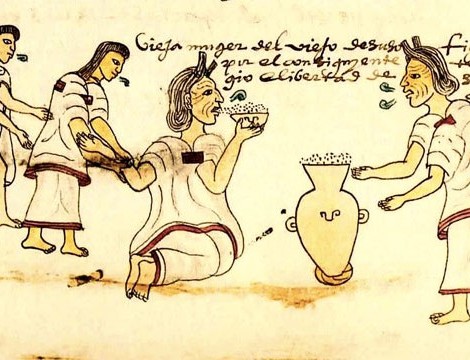 Vieja muger del viejo de suso
por el consiguiente
gio e libertad de